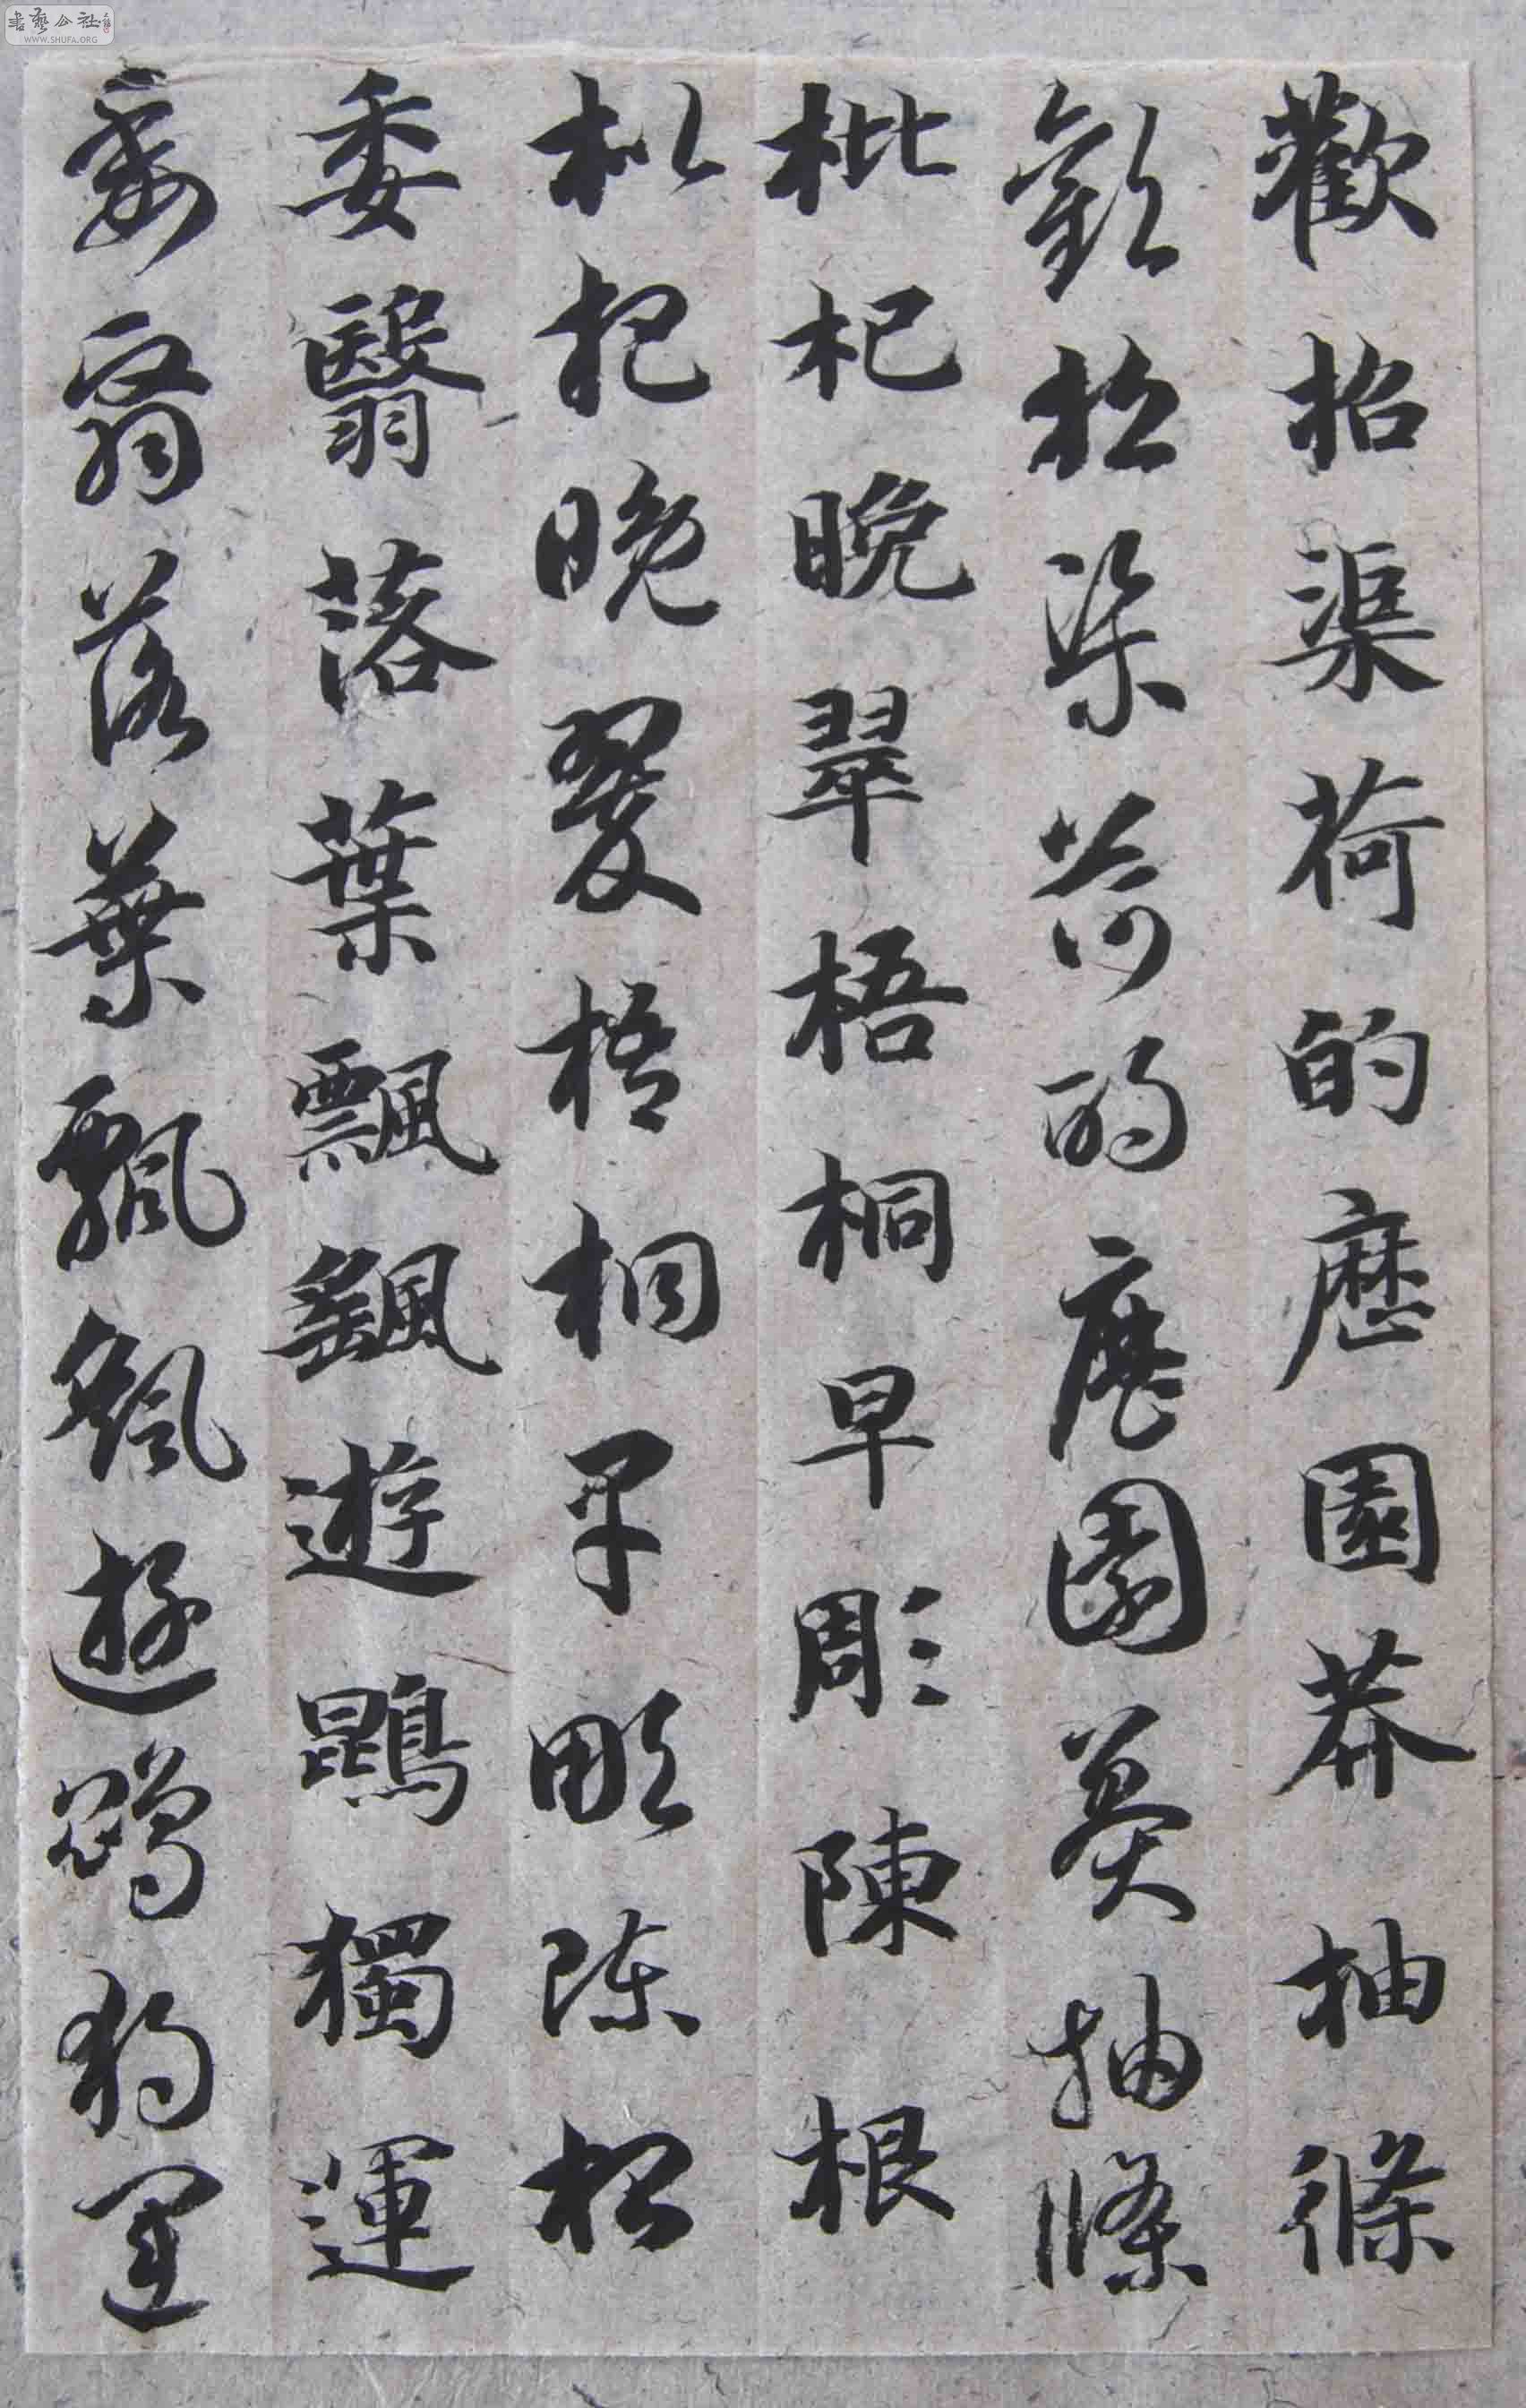 歡招渠荷的歷園莽抽條
歡招渠荷的歷園莽抽條
枇杞晚翠梧桐早彫陳根
枇杞晚翠梧桐早彫陳根
委翳落葉飄颻遊鵾獨運
委翳落葉飄颻遊鵾獨運
書藝公社
WWW.SHUFA.ORG